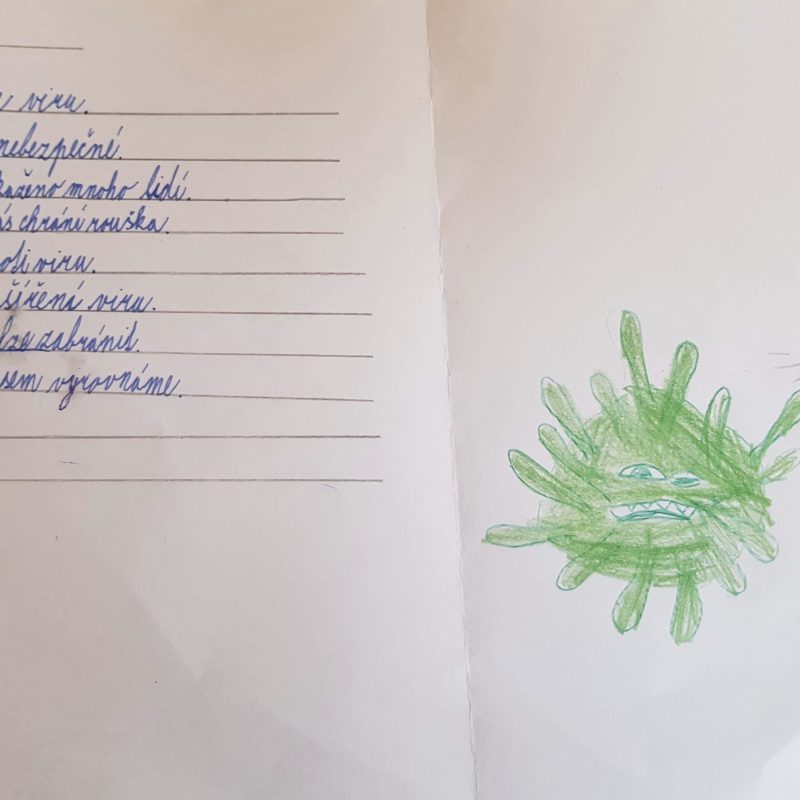 viru.
nebezpečné.
mnoho lidí.
chrání rouška.
viru.
šířená viru.
lze zabránit.
vyrovnáme.